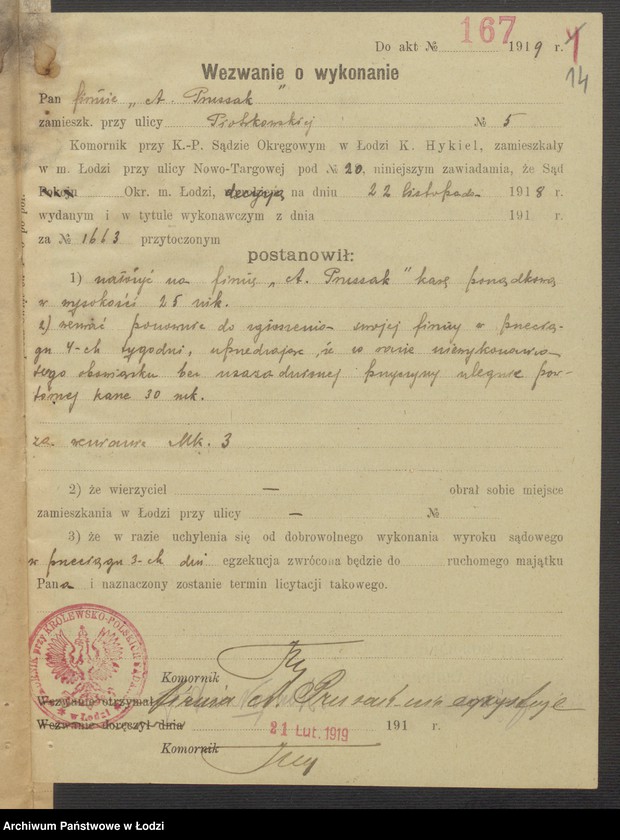 Do akt № 167 1919 r. 4
14
Wezwanie o wykonanie
Pan firmie „A. Prussak"
zamieszk. przy ulicy Piotrkowskiej № 5
Komornik przy K.-P. Sądzie Okręgowym w Łodzi K. Hykiel, zamieszkały
w m. Łodzi przy ulicy Nowo-Targowej pod № 20 niniejszem zawiadamia, że Sąd
Pokoju Okr. m. Łodzi, decyzją na dniu 22 listopada 1918 r.
wydanym i w tytule wykonawczym z dnia 191 r.
za № 1663 przytoczonym
postanowił:
1) nałożyć na firmię „A. Prussak" karę porządkową
w wysokości 25 mk.
2) wezwać ponownie do zgłoszenia swojej firmy w przecią-
gu 4-ch tygodni, uprzedzając, iż w razie niewykonania
tego obowiązku bez uzasadnionej przyczyny ulegnie pow-
tórnej karze 30 mk.
za wezwanie Mk. 3
2) że wierzyciel — obrał sobie miejsce
zamieszkania w Łodzi przy ulicy — №
3) że w razie uchylenia się od dobrowolnego wykonania wyroku sądowego
w przeciągu 3-ch dni egzekucja zwrócona będzie do ruchomego majątku
Pana i naznaczony zostanie termin licytacji takowego.
KOMORNIK przy KRÓLEWSKO-POLSKIM SĄDZIE
w Łodzi
Komornik
Wezwanie otrzymał firma A. Prussak nie egzystuje
Wezwanie doręczył dnia 21 Lut. 1919 191 r.
Komornik
Archiwum Państwowe w Łodzi